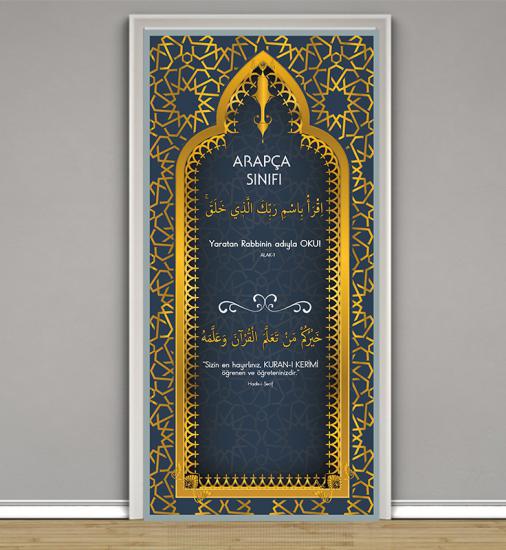 ARAPÇA
SINIFI
اِقْرَأْ بِاسْمِ رَبِّكَ الَّذِي خَلَقَۚ
Yaratan Rabbinin adıyla OKU!
ALAK-1
خَيْرُكُمْ مَنْ تَعَلَّمَ الْقُرْآنَ وَعَلَّمَهُ
"Sizin en hayırlınız, KURAN-I KERİMİ
öğrenen ve öğreteninizdir."
Hadis-i Şerif